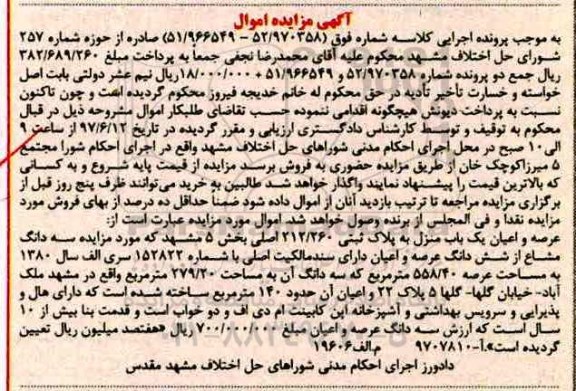 آگهی مزایده اموال
به موجب پرونده اجرایی کلاسه شماره فوق (۵۲/۹۷۰۳۵۸ – ۵۱/۹۶۶۵۴۹) صادره از حوزه شماره ۲۵۷
شورای حل اختلاف مشهد محکوم علیه آقای محمدرضا نجفی جمعاً به پرداخت مبلغ ۳۸۲/۶۸۹/۲۶۰
ریال جمع دو پرونده شماره ۵۲/۹۷۰۳۵۸ و ۵۱/۹۶۶۵۴۹ + ۱۸/۰۰۰/۰۰۰ریال نیم عشر دولتی بابت اصل
خواسته و خسارت تأخیر تأدیه در حق محکوم له خانم خدیجه فیروز محکوم گردیده است و چون تاکنون
نسبت به پرداخت دیونش هیچگونه اقدامی ننموده حسب تقاضای طلبکار اموال مشروحه ذیل در قبال
محکوم به توقیف و توسط کارشناس دادگستری ارزیابی و مقرر گردیده در تاریخ ۹۷/۶/۱۲ از ساعت ۹
الی۱۰ صبح در محل اجرای احکام مدنی شوراهای حل اختلاف مشهد واقع در اجرای احکام شورا مجتمع
۵ میرزاکوچک خان از طریق مزایده حضوری به فروش برسد مزایده از قیمت پایه شروع و به کسانی
که بالاترین قیمت را پیشنهاد نمایند واگذار خواهد شد طالبین به خرید می‌توانند ظرف پنج روز قبل از
برگزاری مزایده مراجعه تا ترتیب بازدید آنان از اموال داده شود ضمناً حداقل ده درصد از بهای فروش مورد
مزایده نقدا و فی المجلس از برنده وصول خواهد شد. اموال مورد مزایده عبارت است از:
عرصه و اعیان یک باب منزل به پلاک ثبتی ۲۱۲/۲۶۰ اصلی بخش ۵ مشهد که مورد مزایده سه دانگ
مشاع از شش دانگ عرصه و اعیان دارای سندمالکیت اصلی با شماره ۱۵۲۸۲۲ سری الف سال ۱۳۸۰
به مساحت عرصه ۵۵۸/۴۰ مترمربع که سه دانگ آن به مساحت ۲۷۹/۲۰ مترمربع واقع در مشهد ملک
آباد- خیابان گلها- گلها ۵ پلاک ۲۲ و اعیان آن حدود ۱۴۰ مترمربع ساخته شده است که دارای هال و
پذیرایی و سرویس بهداشتی و آشپزخانه اپن کابینت ام دی اف و دو خواب است و قدمت بنا بیش از ۱۰
سال است که ارزش سه دانگ عرصه و اعیان مبلغ ۷۰۰/۰۰۰/۰۰۰ریال «هفتصد میلیون ریال تعیین
گردیده است».آ-۹۷۰۷۸۱۰ م.الف۱۹۶۰۶
دادورز اجرای احکام مدنی شوراهای حل اختلاف مشهد مقدس